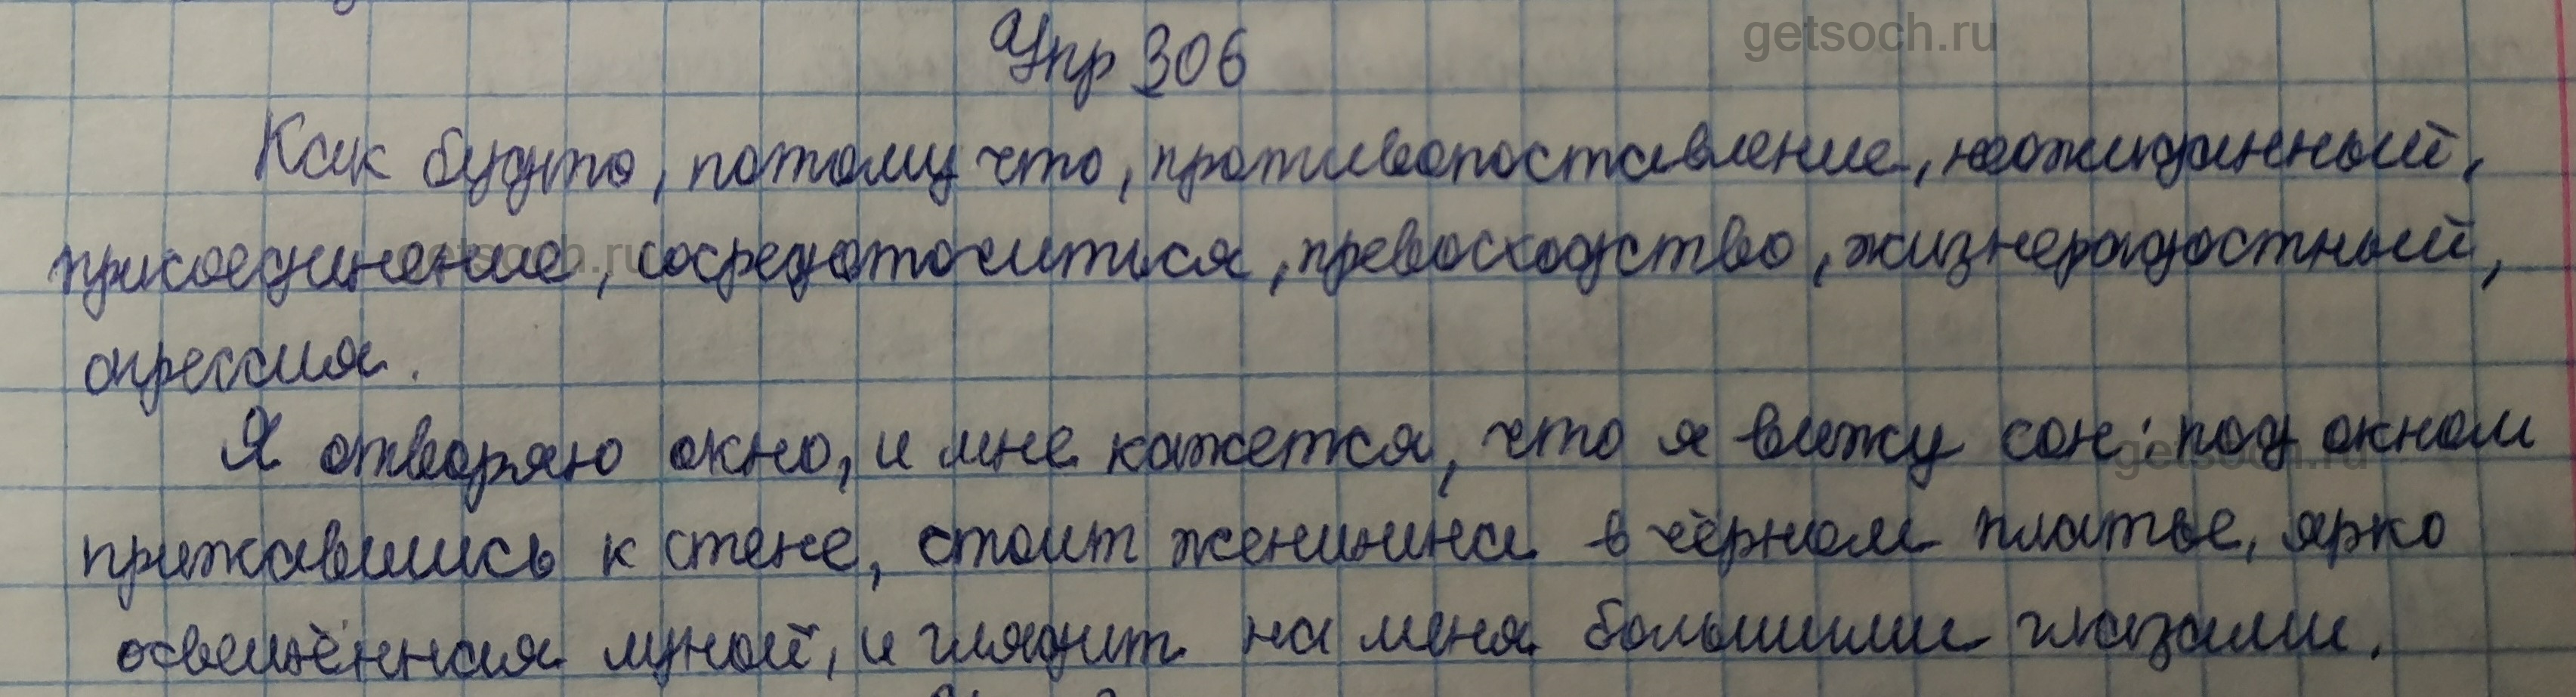 Упр 306
Как будто, потому что, противопоставление, неожиданный,
присоединение, сосредоточиться, превосходство, жизнерадостный,
агрессия.
Я отворяю окно, и мне кажется, что я вижу сон: под окном
прижавшись к стене, стоит женщина в чёрном платье, ярко
освещённая луной, и глядит на меня большими глазами.
getsoch.ru
getsoch.ru
getsoch.ru